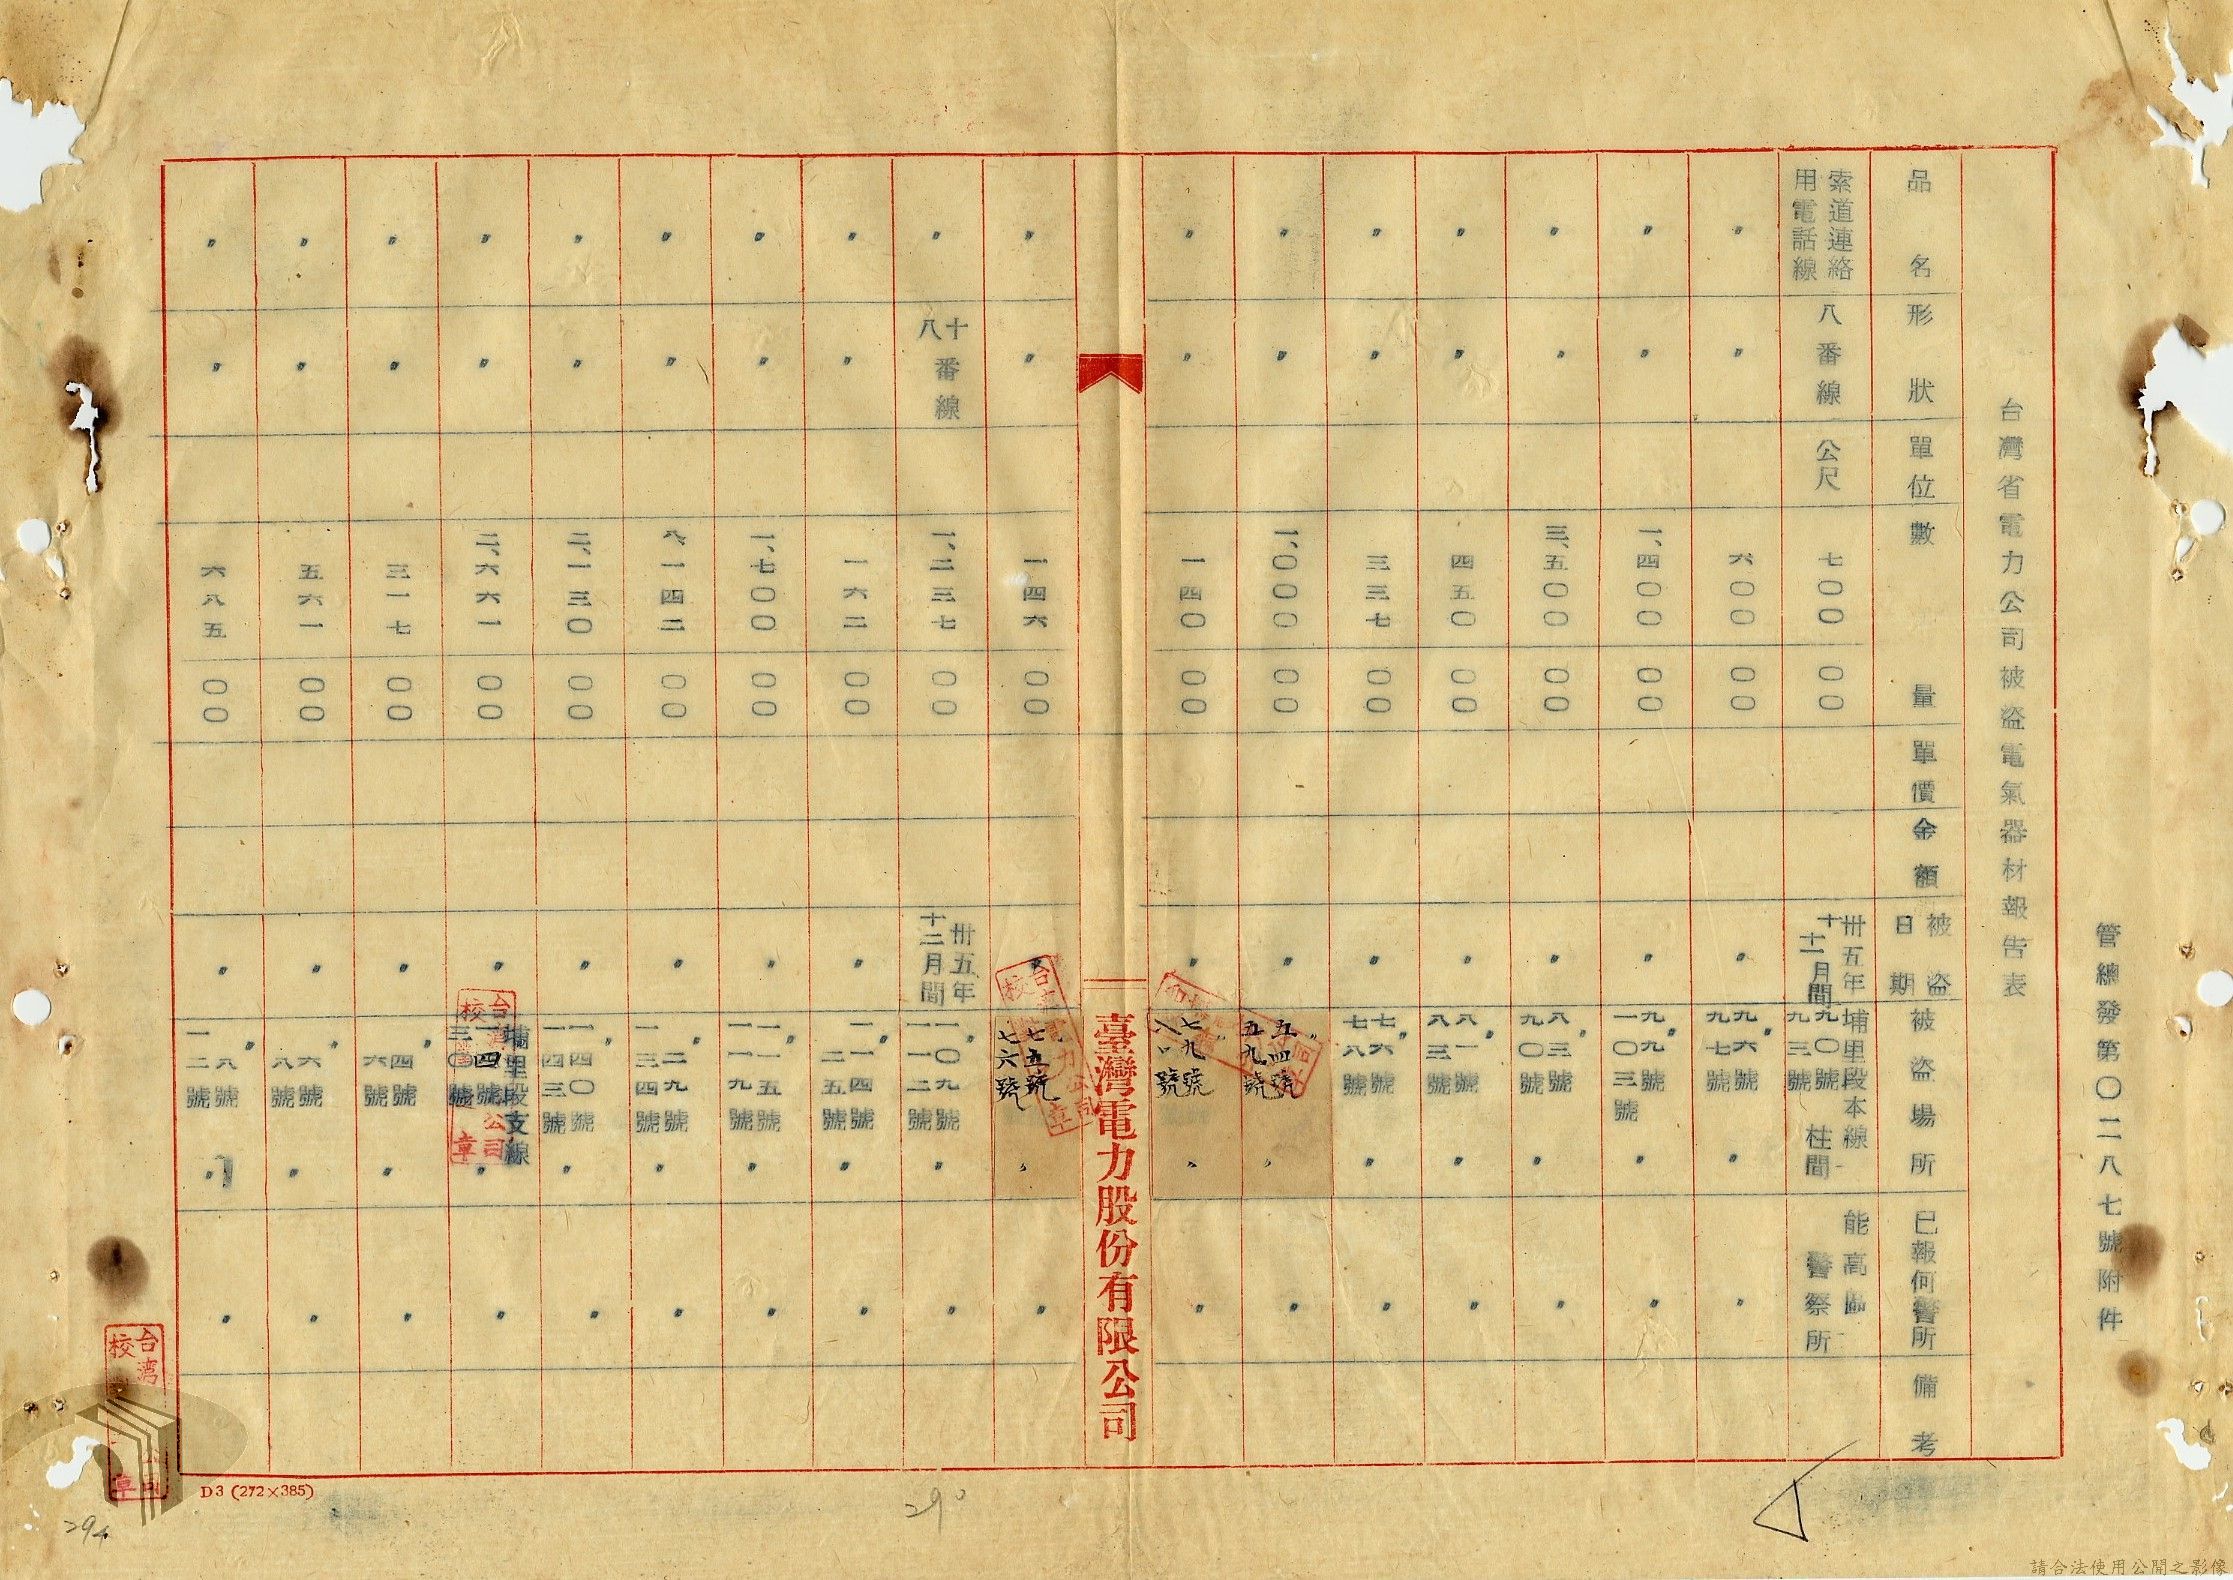 管總發第〇二八七號附件
台灣省電力公司被盜電氣器材報告表
品名 形狀 單位 數量 單價 金額 被盜日期 被盜場所 已報何警所 備考
索道連絡用電話線 八番線 公尺 七〇〇 〇〇 卅五年十十一月間 埔里段本線九〇號九三號柱間 能高區警察所
〃 〃 六〇〇 〇〇 〃 〃九六號九七號〃 〃
〃 〃 一、四〇〇 〇〇 〃 〃九九號一〇三號〃 〃
〃 〃 三、五〇〇 〇〇 〃 〃八三號九〇號〃 〃
〃 〃 四五〇 〇〇 〃 〃八一號八三號〃 〃
〃 〃 三三七 〇〇 〃 〃七六號七八號〃 〃
〃 〃 一、〇〇〇 〇〇 〃 〃五四號五九號〃 〃
〃 〃 一四〇 〇〇 〃 七九號八〇號〃 〃
臺灣電力股份有限公司
〃 〃 一四六 〇〇 〃 〃七五號七六號〃 〃
〃 十八番線 一、二三七 〇〇 卅五年十二月間 〃一〇九號一一二號〃 〃
〃 〃 一六二 〇〇 〃 〃一一四號一二五號〃 〃
〃 〃 一、七〇〇 〇〇 〃 〃一一五號一一九號〃 〃
〃 〃 八、一四二 〇〇 〃 〃一二九號一三四號〃 〃
〃 〃 二、一三〇 〇〇 〃 〃一四〇號一四三號〃 〃
〃 〃 二、六六一 〇〇 〃 埔里段支線一四號三〇號〃 〃
〃 〃 三一七 〇〇 〃 〃四號六號〃 〃
〃 〃 五六一 〇〇 〃 〃六號八號〃 〃
〃 〃 六八五 〇〇 〃 〃八號一二號〃 〃
D3 (272×385)
290
294
請合法使用公開之影像